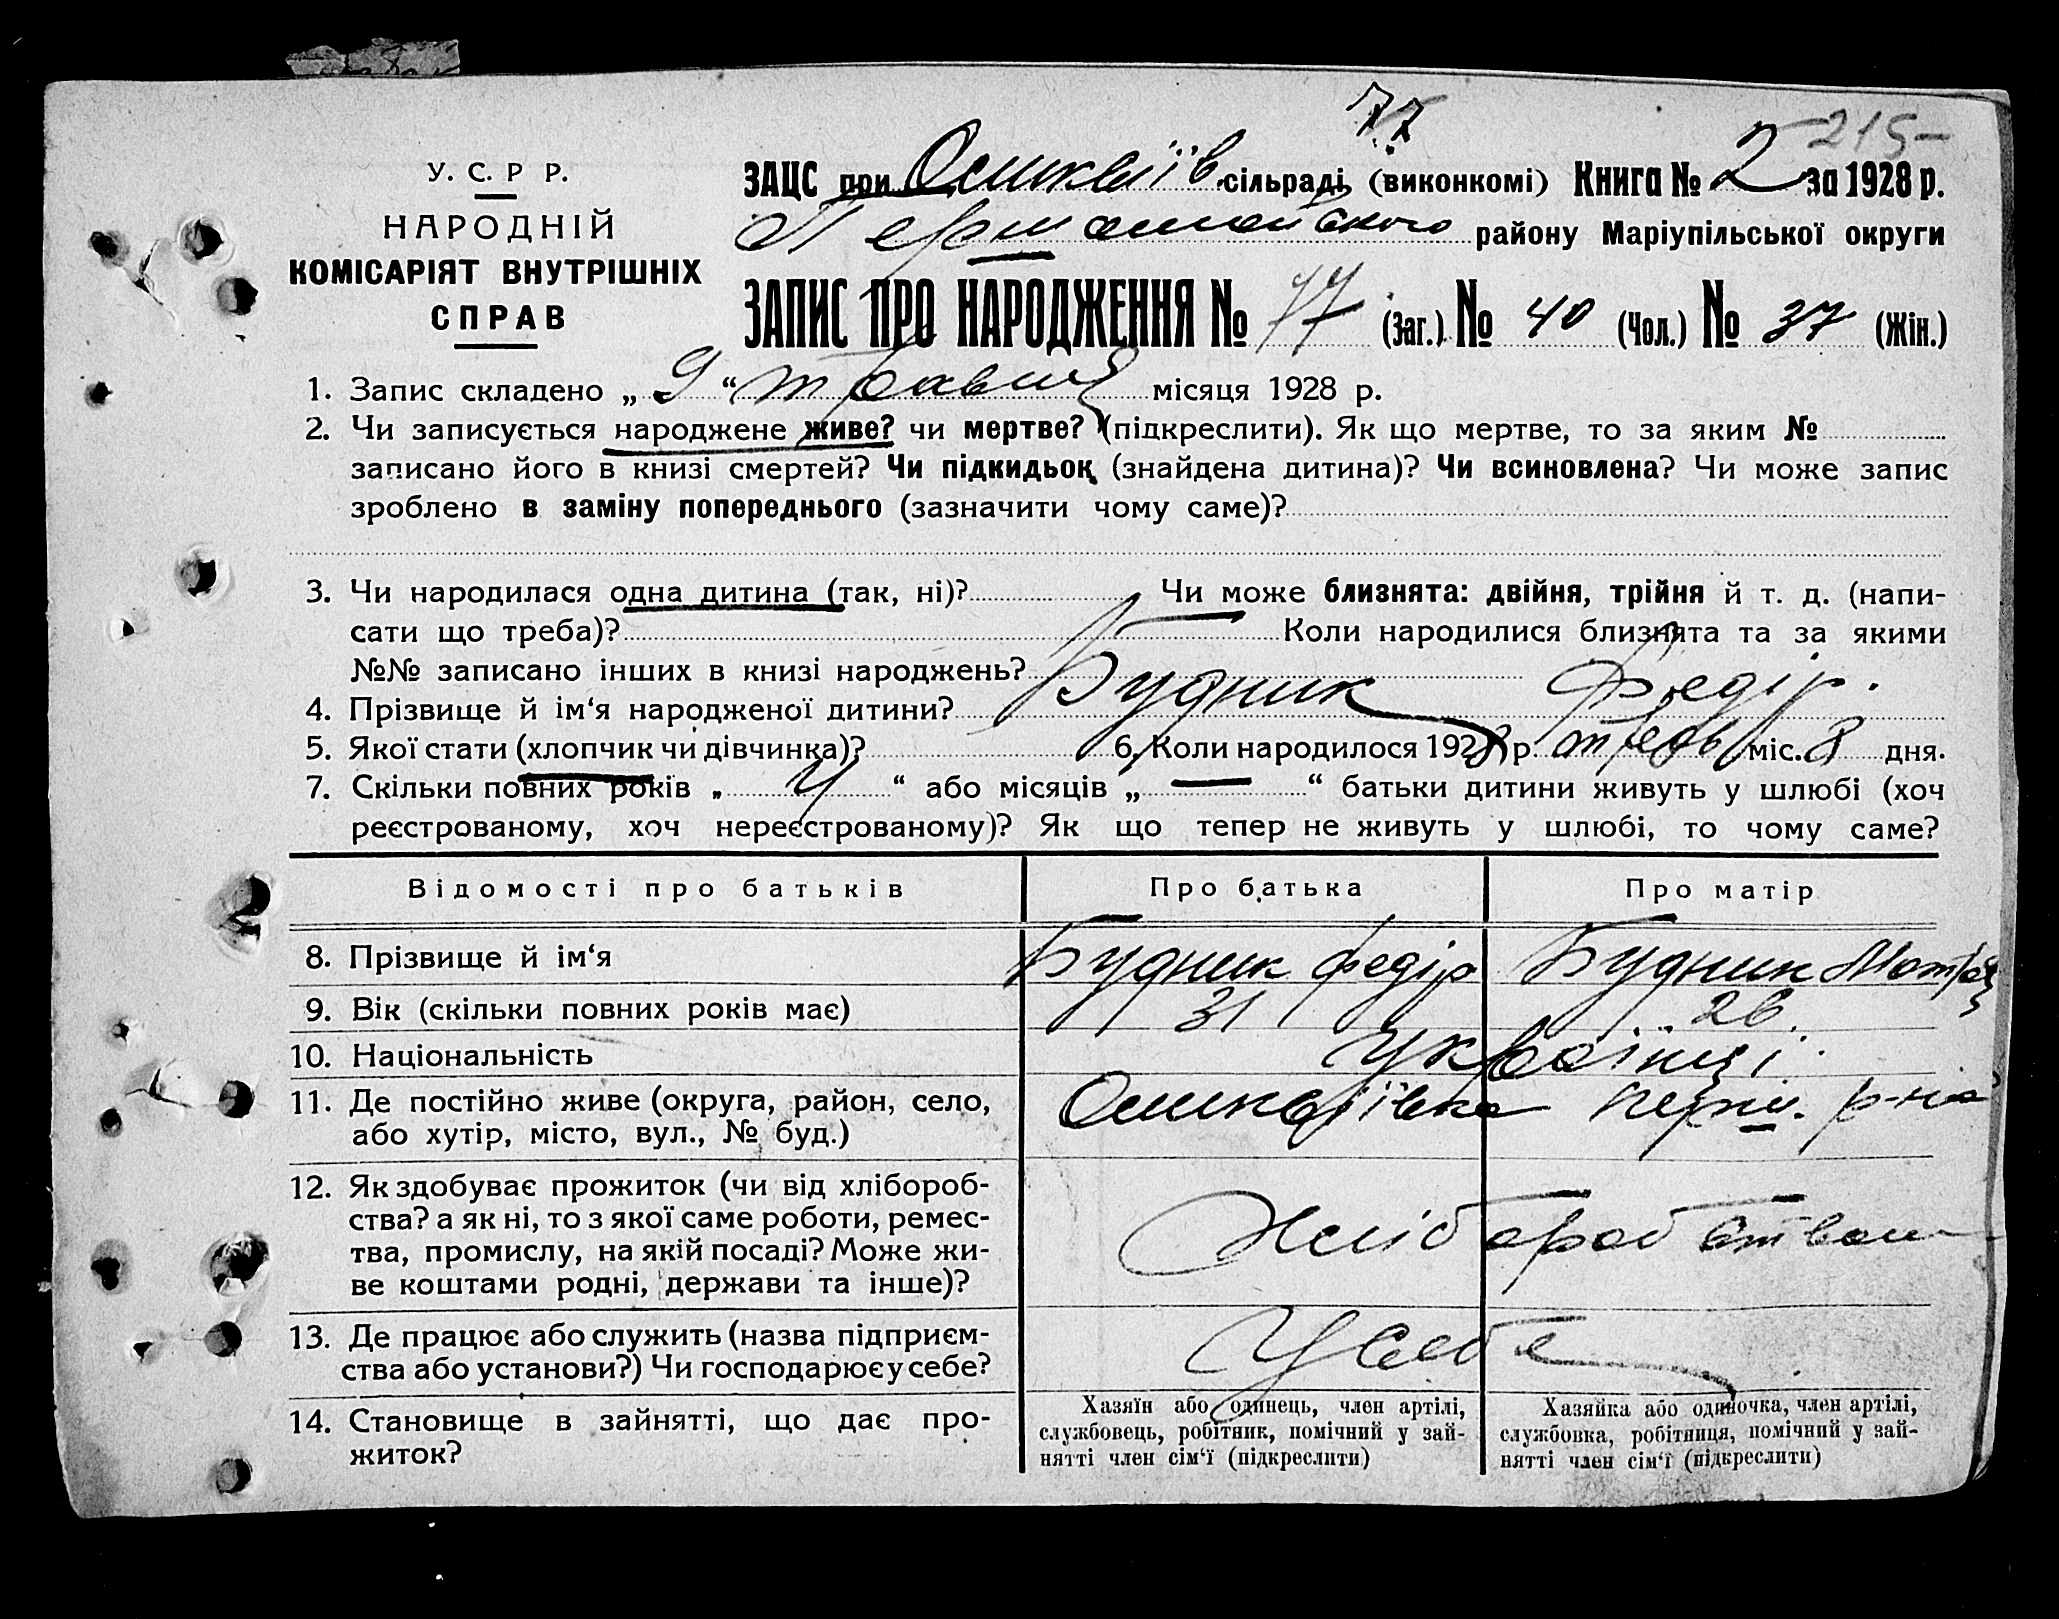 77
215-
У. С. Р Р.
НАРОДНІЙ
КОМІСАРІЯТ ВНУТРІШНІХ
СПРАВ
ЗАЦС при сільраді (виконкомі) Книга № 2 за 1928 р.
Першотравневого району Маріупільської округи
ЗАПИС ПРО НАРОДЖЕННЯ № 77 (Заг.) № 40 (Чол.) № 37 (Жін.)
1. Запис складено „ 9 “ травня місяця 1928 р.
2. Чи записується народжене живе? чи мертве? (підкреслити). Як що мертве, то за яким №
записано його в книзі смертей? Чи підкидьок (знайдена дитина)? Чи всиновлена? Чи може запис
зроблено в заміну попереднього (зазначити чому саме)?
3. Чи народилася одна дитина (так, ні)? Чи може близнята: двійня, трійня й т. д. (напи-
сати що треба)? Коли народилися близнята та за якими
№№ записано інших в книзі народжень?
4. Прізвище й ім‘я народженої дитини? Будник Федір.
5. Якої стати (хлопчик чи дівчинка)? 6. Коли народилося 1928 р. міс. 8 дня.
7. Скільки повних років „ 4 “ або місяців „ — “ батьки дитини живуть у шлюбі (хоч
реєстрованому, хоч нереєстрованому)? Як що тепер не живуть у шлюбі, то чому саме?
Відомості про батьків Про батька Про матір
8. Прізвище й ім‘я Будник Федір Будник Мотря
9. Вік (скільки повних років має) 31 26.
10. Національність Українці.
11. Де постійно живе (округа, район, село,
або хутір, місто, вул., № буд.) Перш. р-на
12. Як здобуває прожиток (чи від хлібороб-
ства? а як ні, то з якої саме роботи, ремес-
тва, промислу, на якій посаді? Може жи-
ве коштами родні, держави та інше)?
Хліборобством
13. Де працює або служить (назва підприєм-
ства або установи?) Чи господарює у себе?
У себе
14. Становище в зайнятті, що дає про-
житок?
Хазяїн або одинець, член артілі,
службовець, робітник, помічний у зай-
нятті член сім‘ї (підкреслити)
Хазяйка або одиночка, член артілі,
службовка, робітниця, помічний у зай-
нятті член сім‘ї (підкреслити)